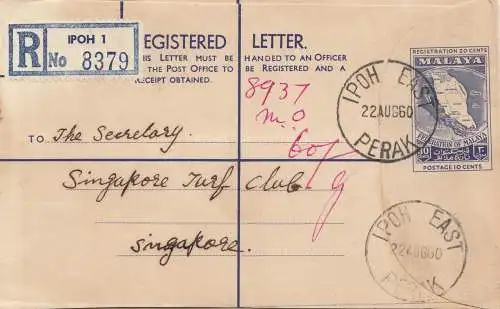 R IPOH 1
No 8379
EGISTERED LETTER.
IS LETTER MUST BE HANDED TO AN OFFICER
THE POST OFFICE TO BE REGISTERED AND A
ECEIPT OBTAINED.
8937
m.o
TO The Secretary,
Singapore Turf Club
Singapore.
REGISTRATION 20 CENTS
MALAYA
FEDERATION OF MALAYA
10
POSTAGE 10 CENTS
IPOH EAST
22AUG60
PERAK
IPOH EAST
22AUG60
PERAK